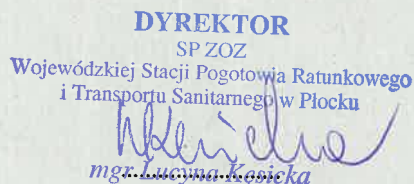 DYREKTOR
SP ZOZ
Wojewódzkiej Stacji Pogotowia Ratunkowego
i Transportu Sanitarnego w Płocku
mgr Lucyna Kęsicka